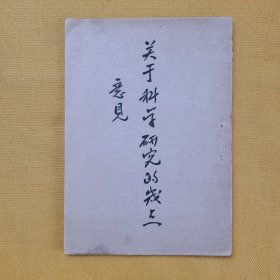 关于科学研究的几点
意見